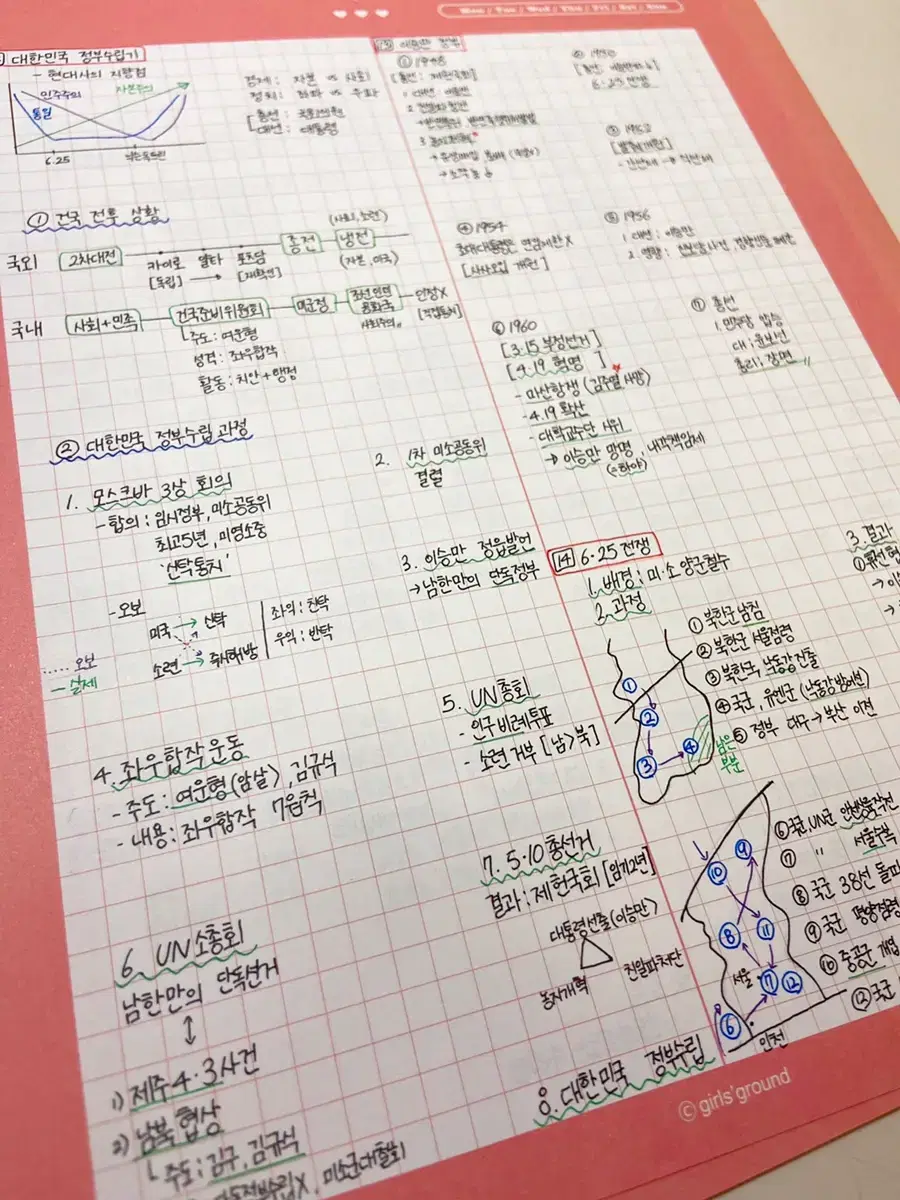 Mon / Tue / Wed / Thu / Fri / Sat / Sun
대한민국 정부수립기
- 현대사의 지향점
민주주의
자본주의
통일
6.25
경제 : 자본 vs 사회
정치 : 좌파 vs 우파
총선 : 국회의원
대선 : 대통령
① 건국 전후 상황
국외
2차대전
카이로
얄타
포츠담
[독립]
[재확인]
종전
냉전
(사회, 소련)
(자본, 미국)
국내
사회+민족
건국준비위원회
미군정
조선인민
공화국
사회주의
인정X
[직접통치]
주도 : 여운형
성격 : 좌우합작
활동 : 치안+행정
② 대한민국 정부수립 과정
1. 모스크바 3상 회의
- 합의 : 임시정부, 미소공동위
최고5년, 미영소중
'신탁통치'
- 오보
미국 → 신탁
소련 → 즉시해방
좌익 : 찬탁
우익 : 반탁
..... 오보
— 실제
2. 1차 미소공동위
결렬
3. 이승만 정읍발언
→ 남한만의 단독정부
4. 좌우합작운동
- 주도 : 여운형(암살), 김규식
- 내용 : 좌우합작 7원칙
5. UN총회
- 인구비례투표
- 소련 거부 [남>북]
6. UN소총회
남한만의 단독선거
↕
1) 제주4·3사건
2) 남북 협상
주도 : 김구, 김규식
단독정부수립X, 미소군대철회
7. 5·10 총선거
결과 : 제헌국회 [임기2년]
대통령선출(이승만)
농지개혁
친일파처단
8. 대한민국 정부수립
13
① 1948
[총선 : 제헌국회]
1. 대선 : 이승만
② 1950
6·25 전쟁
③ 1952
[발췌개헌]
- 간선제 → 직선제
④ 1954
초대대통령은 연임제한 X
[사사오입 개헌]
⑤ 1956
1. 대선 : 이승만
⑥ 1960
[3·15 부정선거]
[4·19 혁명 ]
- 마산항쟁 (김주열 사망)
- 4.19 확산
- 대학교수단 시위
→ 이승만 망명, 내각책임제
(=하야)
⑦ 총선
1. 민주당 압승
대 ; 윤보선
총리 ; 장면
14 6·25 전쟁
1. 배경 : 미·소 양군철수
2. 과정
① 북한군 남침
② 북한군 서울점령
③ 북한군, 낙동강 진출
④ 국군, 유엔군 (낙동강방어선)
⑤ 정부 대구 → 부산 이전
3. 결과
①
②
③
④
남은
부분
⑥ 국군, UN군 인천상륙작전
⑦ " 서울수복
⑧ 국군 38선 돌파
⑨ 국군 평양점령
⑩ 중공군 개입
⑫ 국군
⑨
⑩
⑧
⑪
서울
⑦
⑫
⑥
인천
© girls'ground